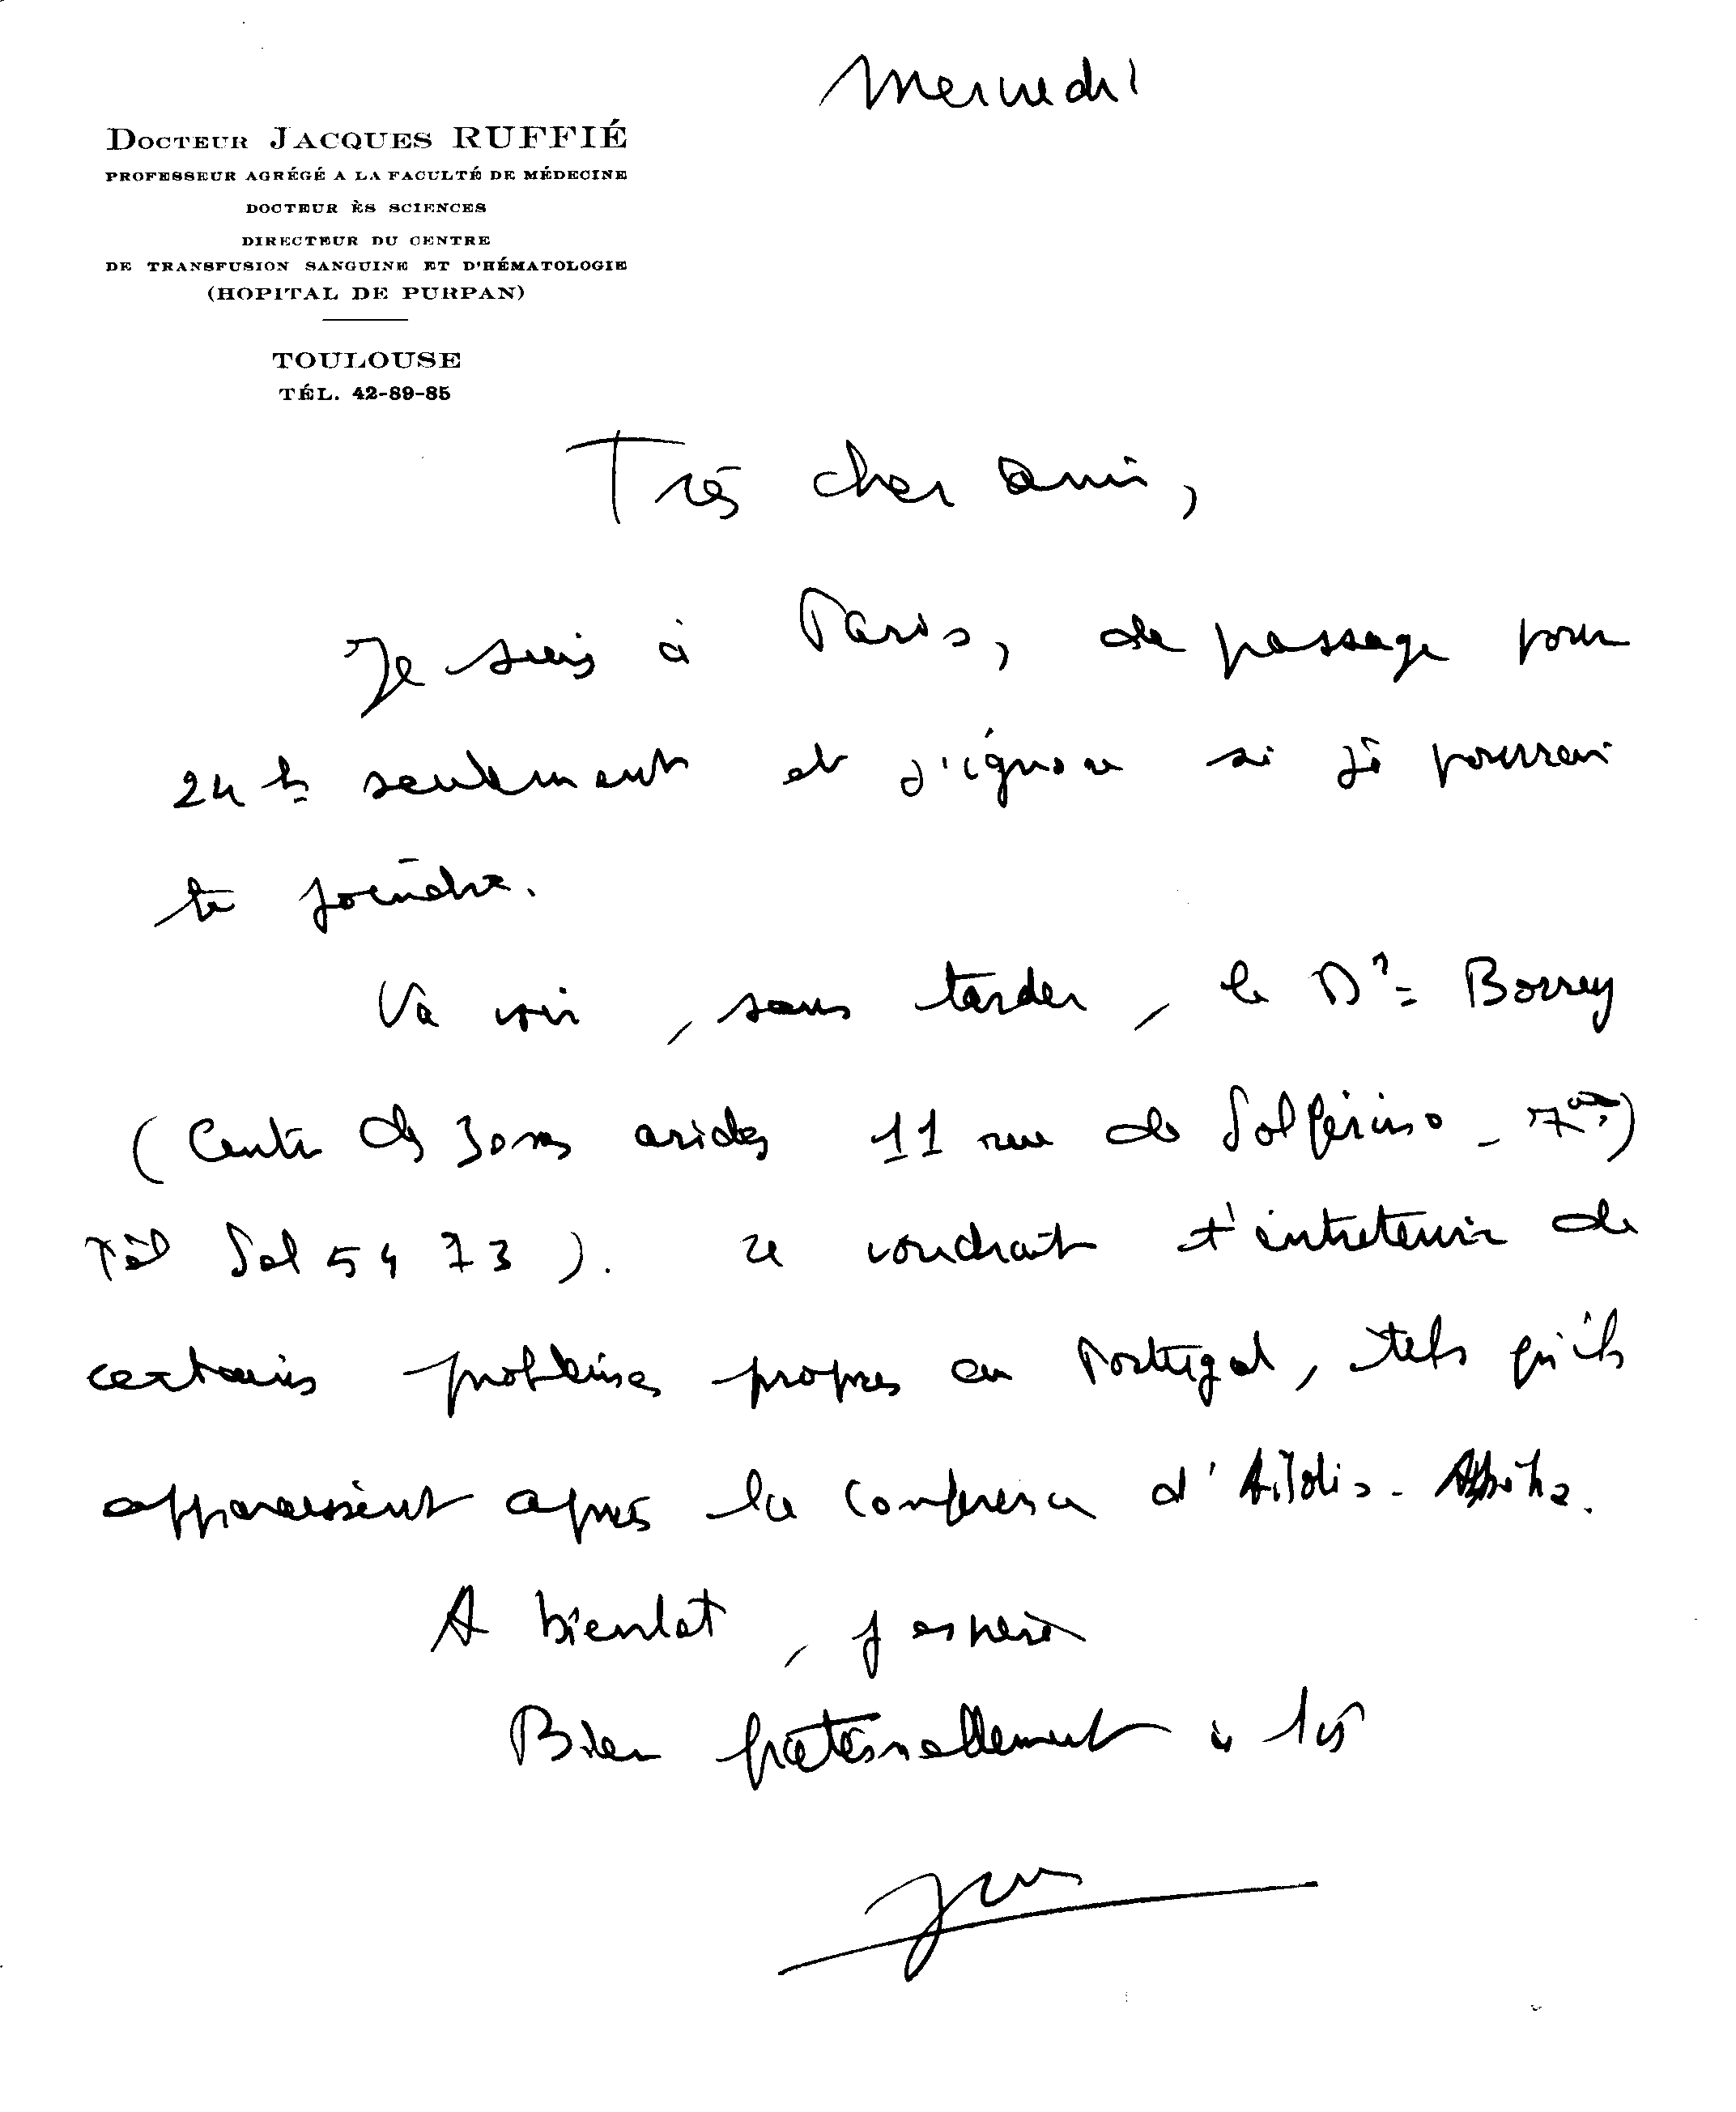 Mercredi
DOCTEUR JACQUES RUFFIÉ
PROFESSEUR AGRÉGÉ A LA FACULTÉ DE MÉDECINE
DOCTEUR ÈS SCIENCES
DIRECTEUR DU CENTRE
DE TRANSFUSION SANGUINE ET D'HÉMATOLOGIE
(HOPITAL DE PURPAN)
TOULOUSE
TÉL. 42-89-85
Très cher ami,
Je suis à Paris, de passage pour
24 h seulement et j'ignore si je pourrai
te joindre.
Va voir, sans tarder, le Dr Borrey
(Centre des zones arides 11 rue de Solférino - 7)
Tél Sol 54 73). Il voudrait t'entretenir de
certains problèmes propres au Portugal, tels qu'ils
apparaissent après la conférence d'Addis-
A bientot, j'espère
Bien fraternellement à toi